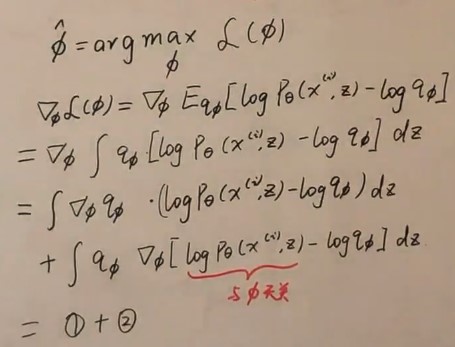 φ̂ = arg max_φ ℒ(φ)
∇_φ ℒ(φ) = ∇_φ E_{qφ}[log P_θ(x^{(i)}, z) − log q_φ]
= ∇_φ ∫ q_φ [log P_θ(x^{(i)}, z) − log q_φ] dz
= ∫ ∇_φ q_φ · (log P_θ(x^{(i)}, z) − log q_φ) dz
+ ∫ q_φ ∇_φ [log P_θ(x^{(i)}, z) − log q_φ] dz
与φ无关
= ① + ②